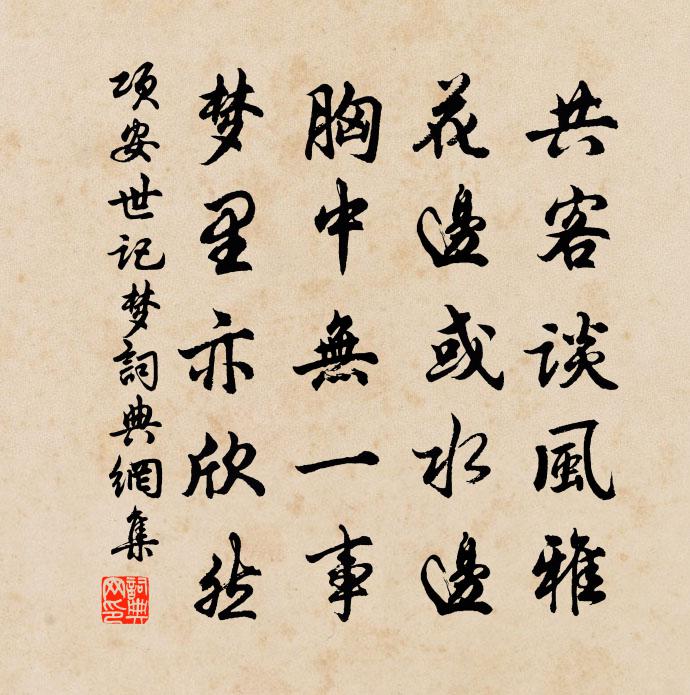 共客谈風雅
花邊或水邊
胸中無一事
梦里亦欣然
项安世记梦詞典網集
詞典網印